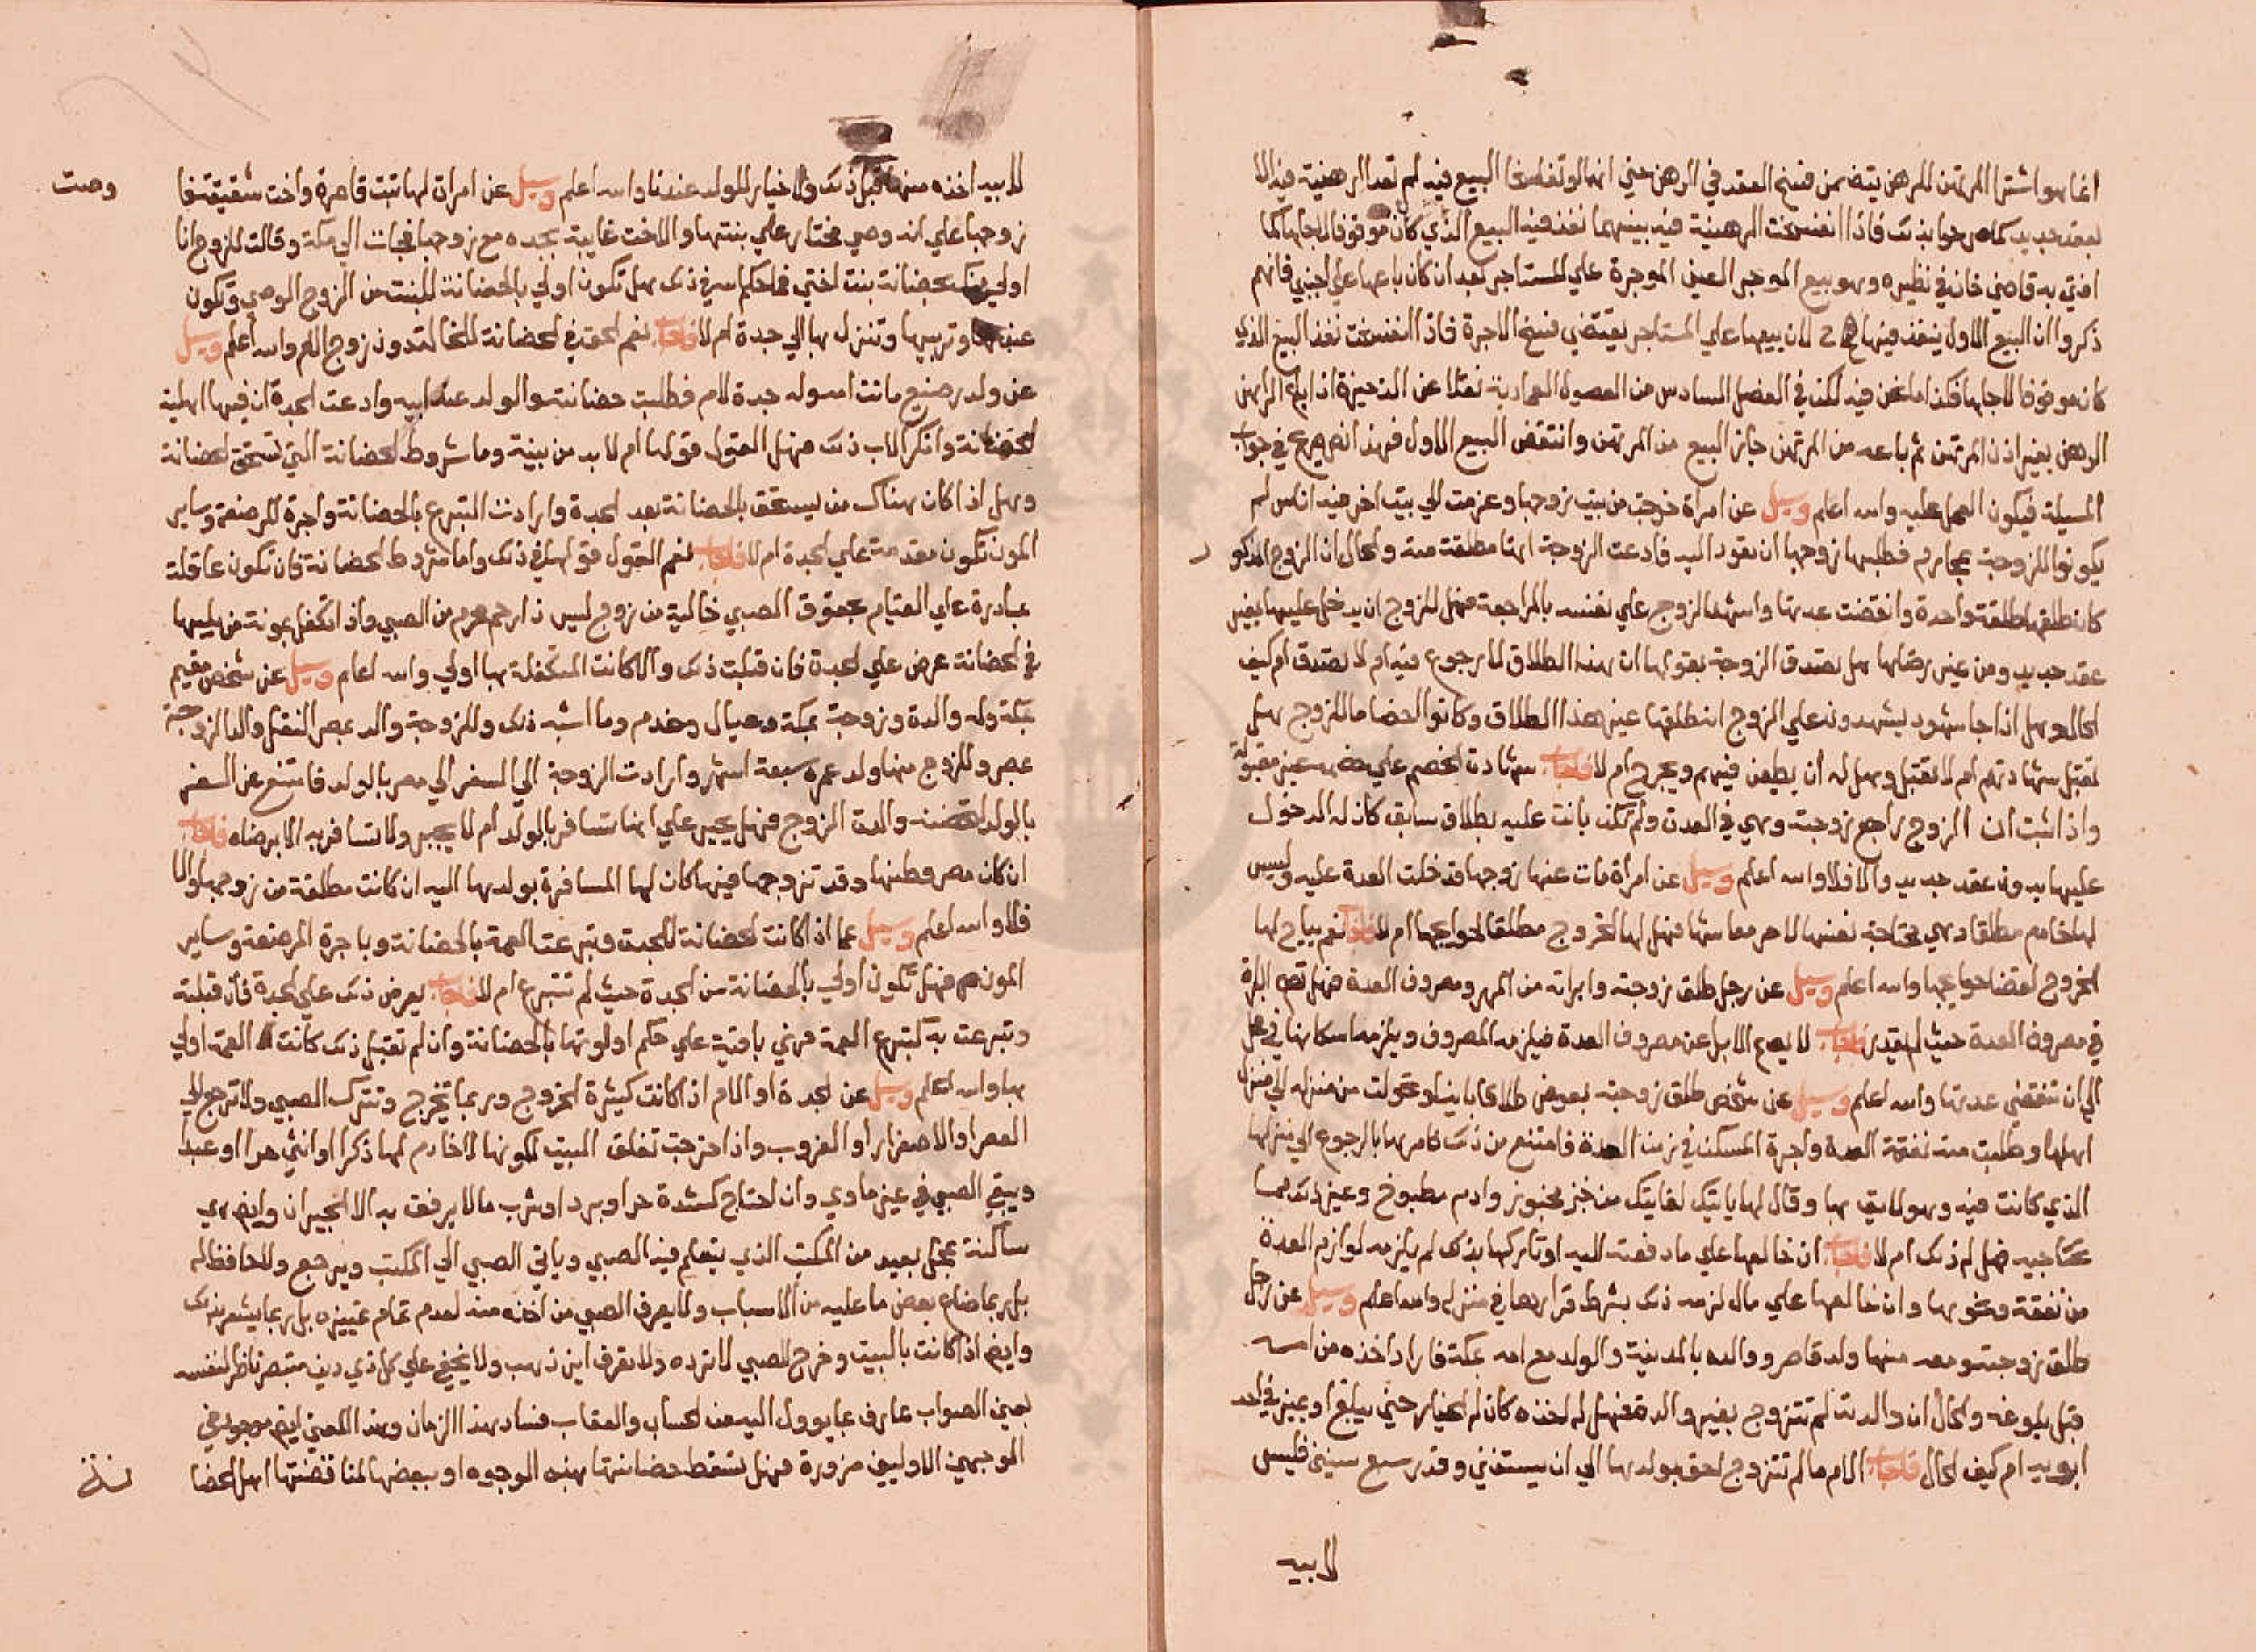 انما هو اشترا المرتهن للرهن يتضمن فسخ العقد في الرهن حتي انهما لو تفاسخا البيع فيه لم تعد الرهنية فيه الا
بعقد جديد كما صرحوا بذلك فاذا انفسخت الرهنية فيه بينهما نفذ فيه البيع الذي كان موقوفا لاجلها كما
افتي به قاضي خان في نظيره وهو بيع الموجر العين الموجرة علي المستاجر بعد ان كان باعها علي اجنبي فانهم
ذكروا ان البيع الاول ينفذ فيها ح لان بيعها علي المستاجر يقتضي فسخ الاجرة فاذا انفسخت نفذ البيع الذي
كان موقوفا لاجلها فكذا ما نحن فيه لكن في الفصل السادس من الفصول العمادية نقلا عن الذخيرة اذا باع الراهن
الرهن بغير اذن المرتهن ثم باعه من المرتهن جاز البيع من المرتهن وانتقض البيع الاول فهذا نص صريح في جواب
المسيلة فيكون العمل عليه والله اعلم وسيل عن امراة خرجت من بيت زوجها وعزمت الي بيت اخر فيه اناس لم
يكونوا للزوجة محارم فطلبها زوجها ان تعود اليه فادعت الزوجة انها مطلقة منه والحال ان الزوج المذكور
كان طلقها طلقة واحدة وانقضت عدتها واشهد الزوج علي نفسه بالمراجعة فهل للزوج ان يدخل عليها بغير
عقد جديد ومن غير رضاها هل تصدق الزوجة بقولها ان هذا الطلاق لا رجوع فيه ام لا تصدق ام كيف
الحال وهل اذا جا شهود يشهدون علي الزوج انه طلقها غير هذا الطلاق وكانوا اخصاما للزوج هل
تقبل شهادتهم ام لا تقبل وهل له ان يطعن فيهم ويجرح ام لا فاجاب شهادة الخصم علي خصمه غير مقبولة
واذا ثبت ان الزوج راجع زوجته وهي في العدة ولم تكن بانت عليه بطلاق سابق كان له الدخول
عليها بدون عقد جديد والا فلا والله اعلم وسيل عن امراة مات عنها زوجها قد خلت العدة عليه وليس
لها خادم مطلقا وهي محتاجة نفسها لامر معاشها فهل لها الخروج مطلقا لحوايجها ام لا فاجاب نعم يباح لها
الخروج لقضا حوايجها والله اعلم وسيل عن رجل طلق زوجته وابراته من المهر ومصروف العدة فهل تصح البراة
في مصروف العدة حيث لم يقدر فاجاب لا يصح الابرا عن مصروف العدة فيلزمه المصروف ويلزمه اسكانها في محل
الي ان تنقضي عدتها والله اعلم وسيل عن شخص طلق زوجته بعوض طلاقا باينا وتحولت من منزله الي منزل
اهلها وطلبت منه نفقة العدة واجرة المسكن في زمن العدة فامتنع من ذلك فامرها بالرجوع الي منزلها
الذي كانت فيه وهو لايق بها وقال لها ياتيك كفايتك من خبز مخبوز وادم مطبوخ وغير ذلك مما
تحتاجيه فهل له ذلك ام لا فاجاب ان خالعها علي ما دفعته اليه او تاركها بذلك لم يلزمه لوازم العدة
من نفقة ونحوها وان خالعها علي مال لزمه ذلك بشرط قرارها في منزله والله اعلم وسيل عن رجل
طلق زوجته ومعه منها ولد قاصر ووالده بالمدينة والولد مع امه بمكة فاراد اخذه من امه
قبل بلوغه والحال ان والدته لم تتزوج بغير والده فهل له اخذه كان له الخيار حتي يبلغ او يميز في احد
ابويه ام كيف الحال فاجاب الام ما لم تتزوج احق بولدها الي ان يستغني وقدر سبع سنين فليس
لابيه
لابيه اخذه منها قبل ذلك ولا خيار للولد عندنا والله اعلم وسيل عن امراة لها بنت قاصرة واخت شقيقة فا
وصت
زوجها علي انه وصي مختار علي بنتها والاخت غايبة بجده مع زوجها فجات الي مكة وقالت للزوج انا
اولي منك بحضانة بنت اختي فما حكم الله في ذلك هل تكون اولي بالحضانة للبنت من الزوج الوصي وتكون
عندها وتربيها وتنزل بها الي جدة ام لا فاجاب نعم الحق في الحضانة للخالة دون زوج الام والله اعلم وسيل
عن ولد رضيع ماتت امه وله جدة لام فطلبت حضانته والولد عند ابيه وادعت الجدة ان فيها اهلية
الحضانة وانكر الاب ذلك فهل القول قولها ام لا بد من بينة وما شروط الحضانة التي تستحق الحضانة
وهل اذا كان هناك من يستحق بالحضانة بعد الجدة وارادت التبرع بالحضانة واجرة المرضعة وساير
المون تكون مقدمة علي الجدة ام لا فاجاب نعم القول قولها في ذلك واما شروط الحضانة فان تكون عاقلة
قادرة علي القيام بحقوق الصبي خالية من زوج ليس ذا رحم محرم من الصبي واذا تكفل بمونة من يليها
في الحضانة عرض علي الجدة فان قبلت ذلك والا كانت المتكفلة بها اولي والله اعلم وسيل عن شخص مقيم
بمكة وله والدة وزوجة بمكة وعيال وخدم وما اشبه ذلك وللزوجة والد بمصر انتقل والد الزوجة
بمصر وللزوج منها ولد عمره سبعة اشهر وارادت الزوجة الي السفر الي مصر بالولد فامتنع عن السفر
بالولد لتحضنه والدة الزوج فهل يجبر علي انها تسافر بالولد ام لا يجبر ولا تسافر به الا برضاه فاجاب
ان كان مصر وطنها وقد تزوجها فيها كان لها المسافرة بولدها اليه ان كانت مطلقة من زوجها والا
فلا والله اعلم وسيل عما اذا كانت الحضانة للجدة وتبرعت العمة بالحضانة وباجرة المرضعة وساير
المون فهل تكون اولي بالحضانة من الجدة حيث لم تتبرع ام لا فاجاب يعرض ذلك علي الجدة فان قبلته
وتبرعت به كتبرع العمة فهي باقية علي حكم اولويتها بالحضانة وان لم تقبل ذلك كانت العمة اولي
بها والله اعلم وسيل عن الجدة او الام اذا كانت كثيرة الخروج وربما تخرج وتترك الصبي ولا ترجع الي
العصر او الاصفرار او الغروب واذا خرجت تغلق البيت لكونها لا خادم لها ذكرا او انثي حرا او عبدا
ويبقي الصبي في غير ماوي وان احتاج كشدة حر او برد او شرب مالا يرفق به الا الجيران وايض هي
ساكنة بمحل بعيد من المكتب الذي يتعلم فيه الصبي وياتي الصبي الي المكتب ويرجع ولا حافظ له
بل ربما ضاع بعض ما عليه من الاسباب ولا يعرف الصبي من اخذه منه لعدم تمام تمييزه بل ربما يشعر بذلك
وايض اذا كانت بالبيت وخرج الصبي لا ترده ولا تعرف اين ذهب ولا يخفي علي كل ذي دين متبصر ناظر لنفسه
بعين الصواب عارف بما يوول اليه من الحساب والعقاب فساد هذا الزمان وهذا المعني ايض موجود في
الموجهين الاوليين ضرورة فهل تسقط حضانتها بهذه الوجوه او ببعضها لمناقضتها اهل الحضا
نة